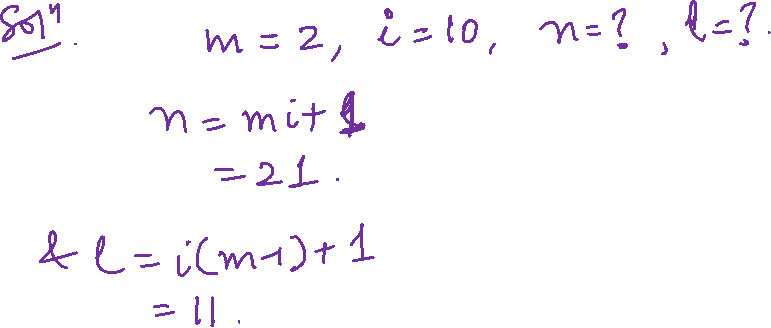 Solⁿ. m = 2, i = 10, n = ?, l = ?.
n = mi + 1
= 21.
& l = i(m-1) + 1
= 11.